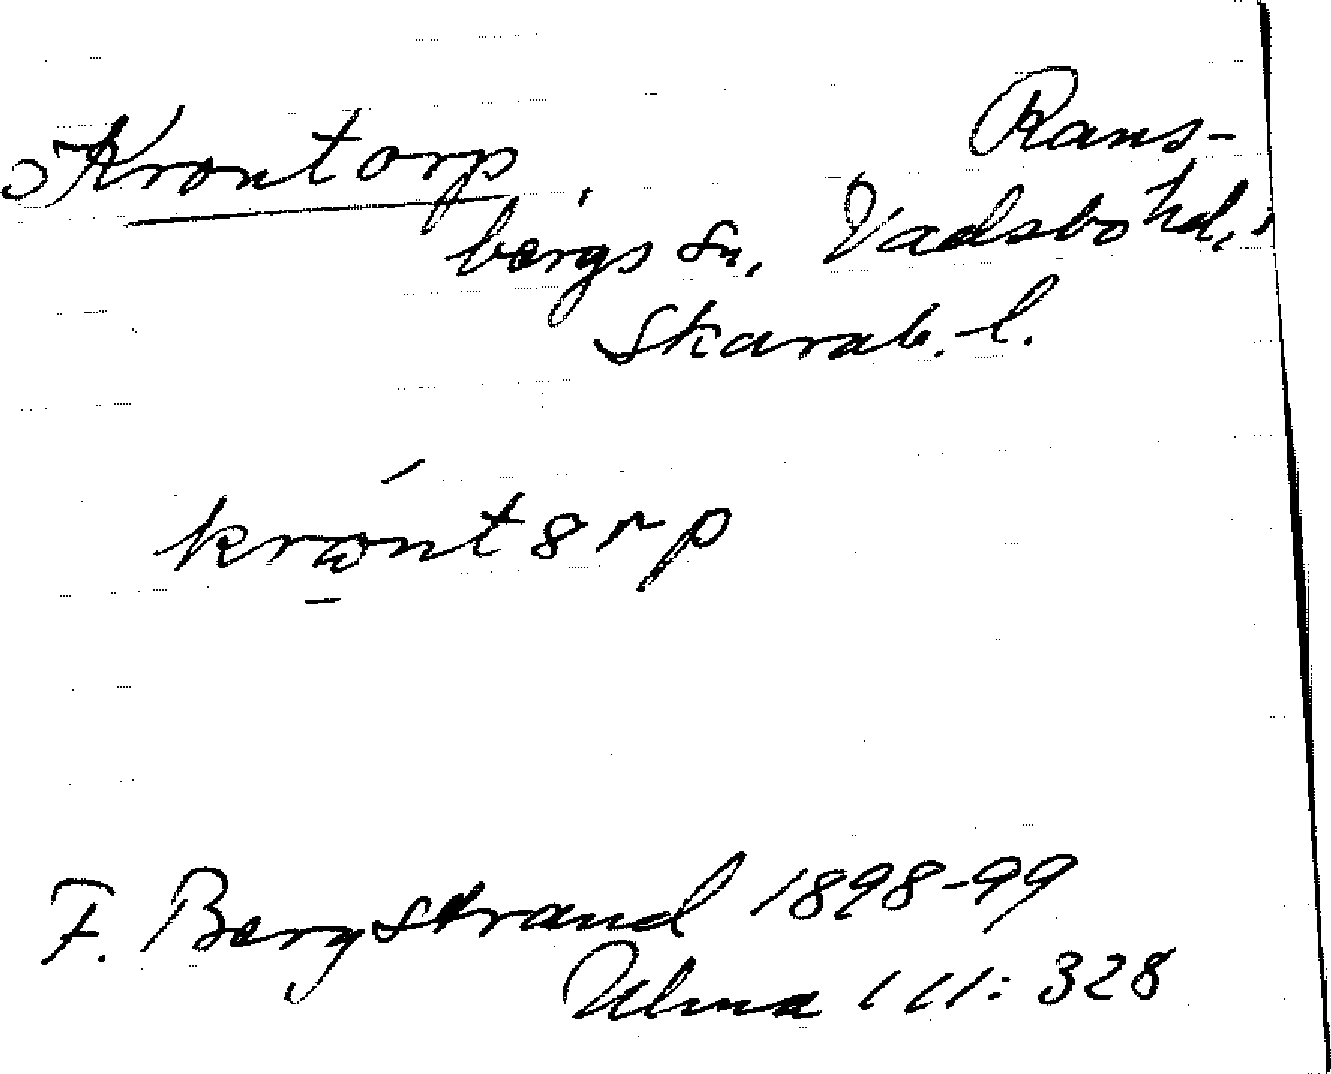 Krontorp, Rans-
bergs sn, Vadsbo hd,
Skarab. l.
krånt8rp
F. Bergstrand 1898-99
Ulma 111: 328